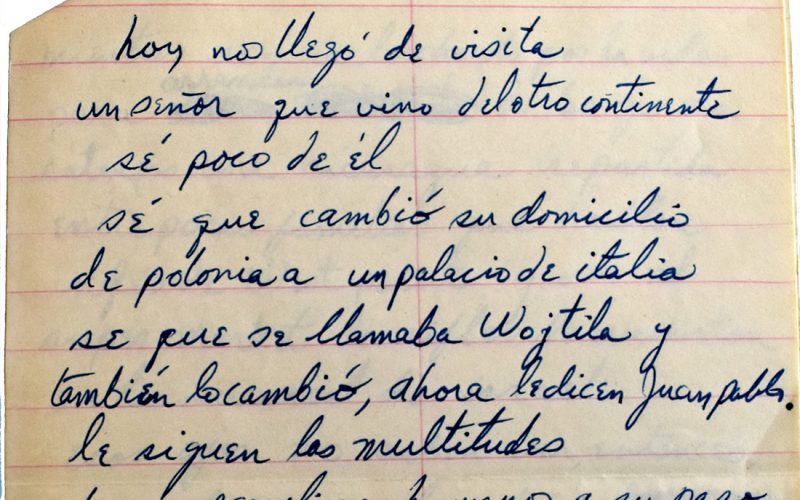 hoy nos llegó de visita
un señor que vino del otro continente
sé poco de él
sé que cambió su domicilio
de polonia a un palacio de italia
se que se llamaba Wojtila y
también lo cambió, ahora le dicen Juan pablo.
le siguen las multitudes
a su paso